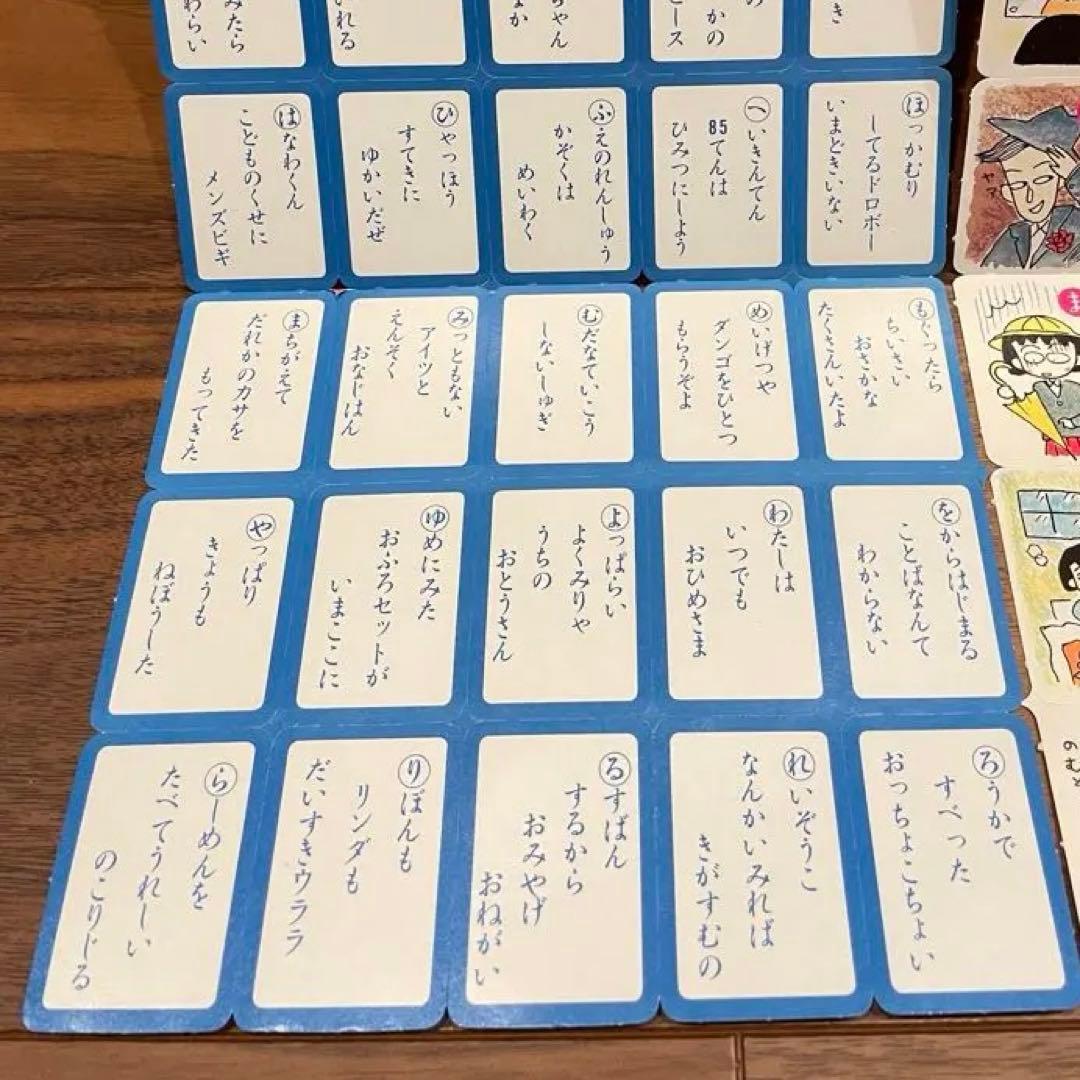 みたら
わらい
いれる
ちゃん
なか
の
かの
ース
き
はなわくん
こどものくせに
メンズビギ
ひゃっほう
すてきに
ゆかいだぜ
ふえのれんしゅう
かぞくは
めいわく
へいきんてん
85てんは
ひみつにしよう
ほっかむり
してるドロボー
いまどきいない
ヤア
まちがえて
だれかのカサを
もってきた
みっともない
アイツと
えんそく
おなじはん
むだなていこう
しないしゅぎ
めいげつや
ダンゴをひとつ
もらうぞよ
もぐったら
ちいさい
おさかな
たくさんいたよ
ま
やっぱり
きょうも
ねぼうした
ゆめにみた
おふろセットが
いまここに
よっぱらい
よくみりゃ
うちの
おとうさん
わたしは
いつでも
おひめさま
をからはじまる
ことばなんて
わからない
らーめんを
たべてうれしい
のこりじる
りぼんも
リンダも
だいすきウララ
るすばん
するから
おみやげ
おねがい
れいぞうこ
なんかいみれば
きがすむの
ろうかで
すべった
おっちょこちょい
のむと